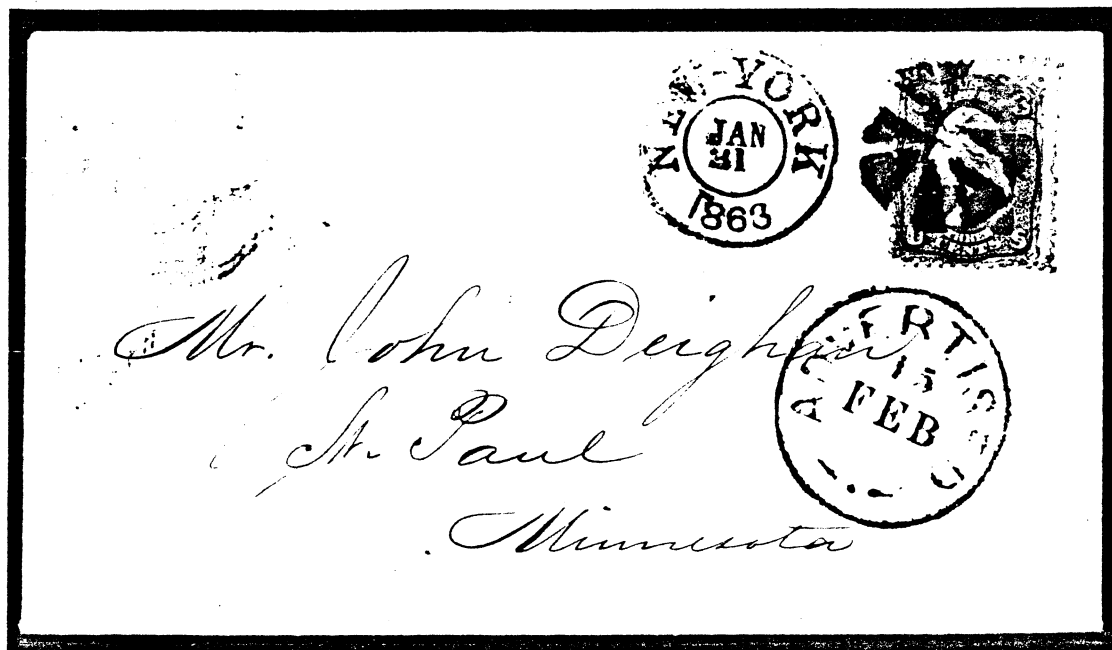 NEW-YORK
JAN
21
1863
Mr. John Deighan
St. Paul
Minnesota
ADVERTISED
15
FEB